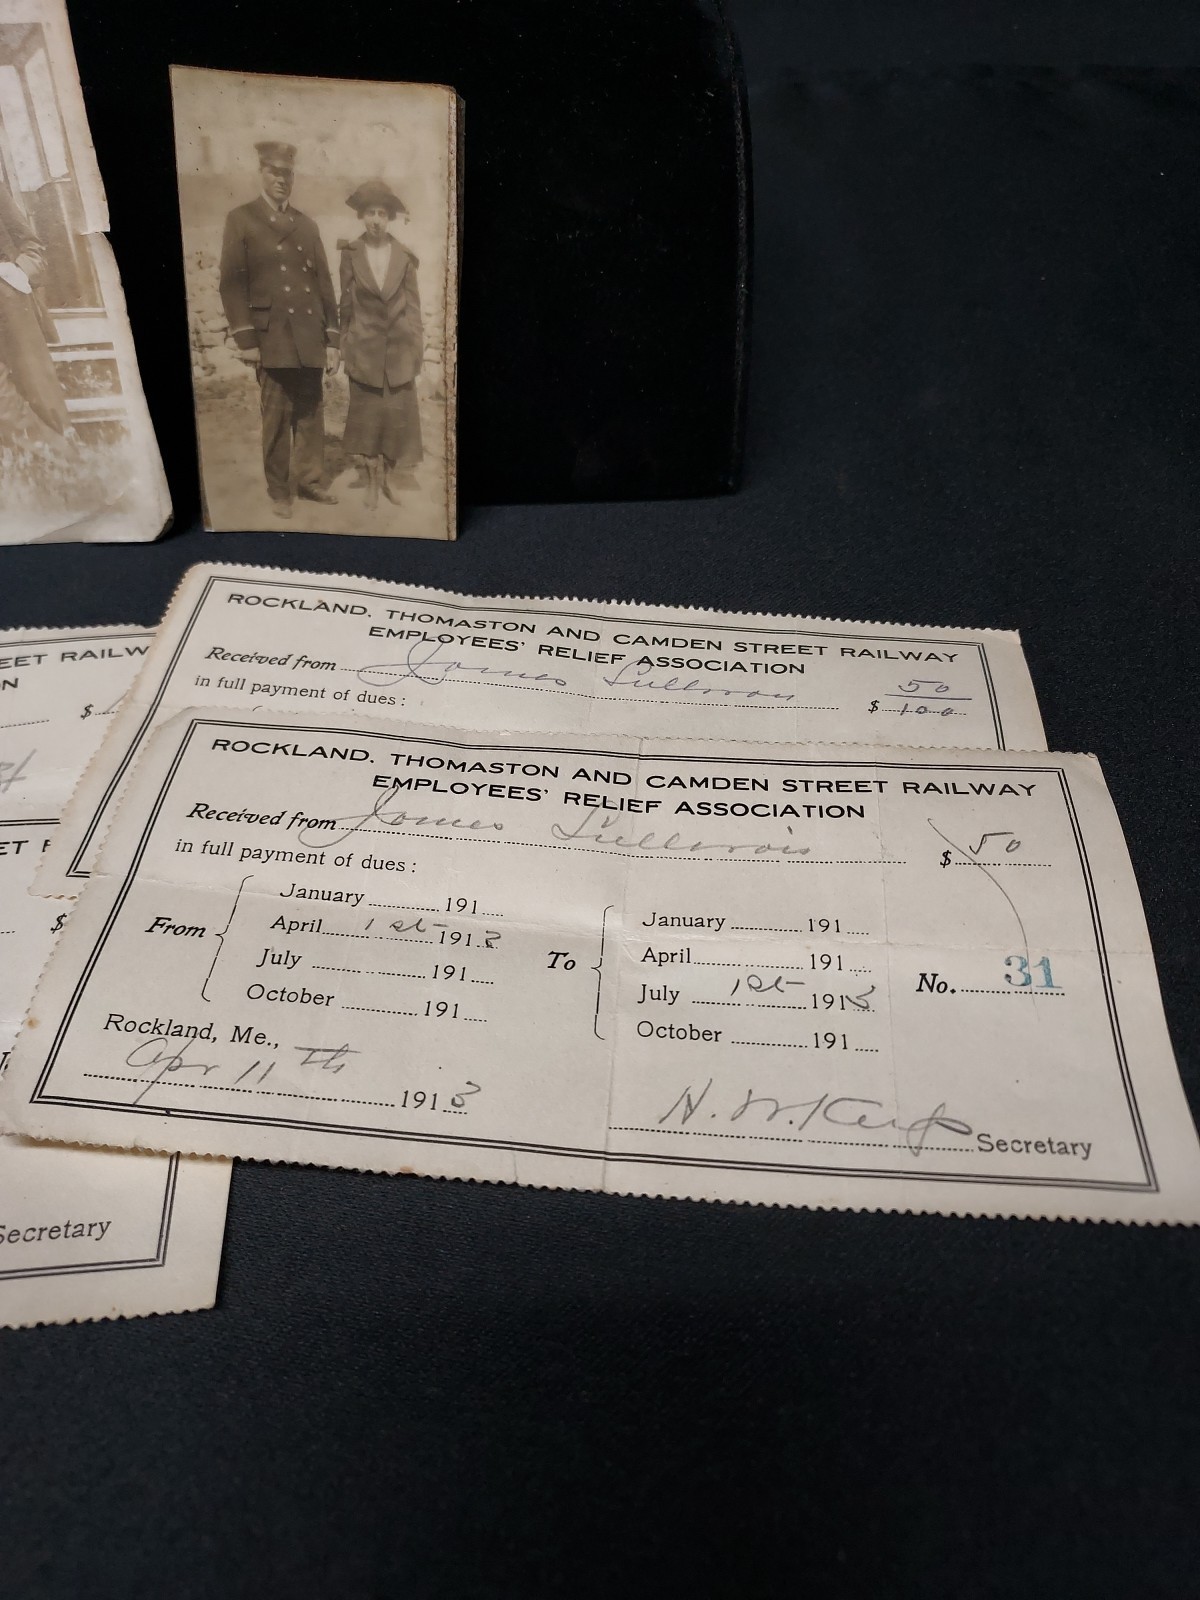 ROCKLAND, THOMASTON AND CAMDEN STREET RAILWAY
EMPLOYEES' RELIEF ASSOCIATION
Received from James Sullivan
50
$ 100
in full payment of dues:
ROCKLAND, THOMASTON AND CAMDEN STREET RAILWAY
EMPLOYEES' RELIEF ASSOCIATION
Received from James Sullivan $ 50
in full payment of dues:
From
January 191
April 1st 1913
July 191
October 191
To
January 191
April 191
July 1st 1913
October 191
No. 31
Rockland, Me.,
Apr 11th 1913
H. W. Secretary
EET RAILW
N
$
ET
$
Secretary